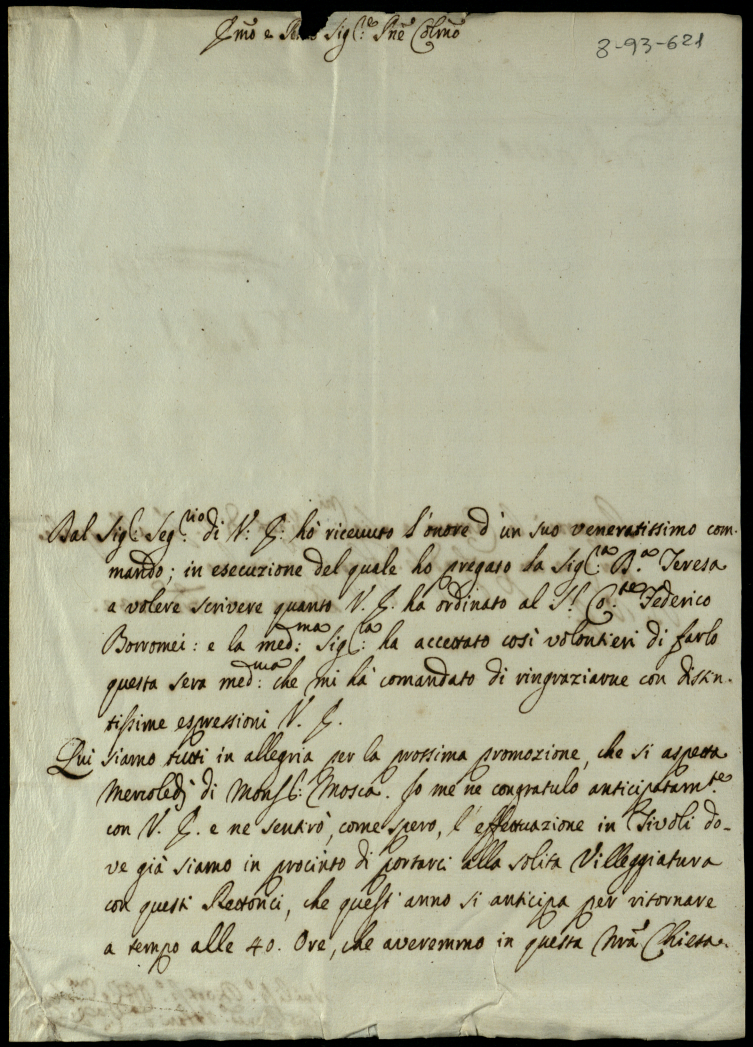 Jll̃mo e Sig.re Pñe Colm̃o
8-93-621
Dal Sig.r Seg.rio di V: J: hò ricevuto l'onore d'un suo veneratissimo com-
mando; in esecuzione del quale ho pregato la Sig.ra B.a Teresa
a volere scrivere quanto V. J. ha ordinato al S.r Co.te Federico
Borromei: e la med:ma Sig.ra ha accettato così volontieri di farlo
questa sera med:ma che mi hà comandato di ringraziarne con distin-
tissime espressioni V. J.
Qui siamo tutti in allegria per la prossima promozione, che si aspetta
Mercoledj di Mons.r Mosca. Jo me ne congratulo anticipatam.te
con V. J. e ne sentirò, come spero, l'effettuazione in Tivoli do-
ve già siamo in procinto di portarci alla solita Villeggiatura
con questi Rettorici, che quest'anno si anticipa per ritornare
a tempo alle 40. Ore, che averemmo in questa Nrã Chiesa.